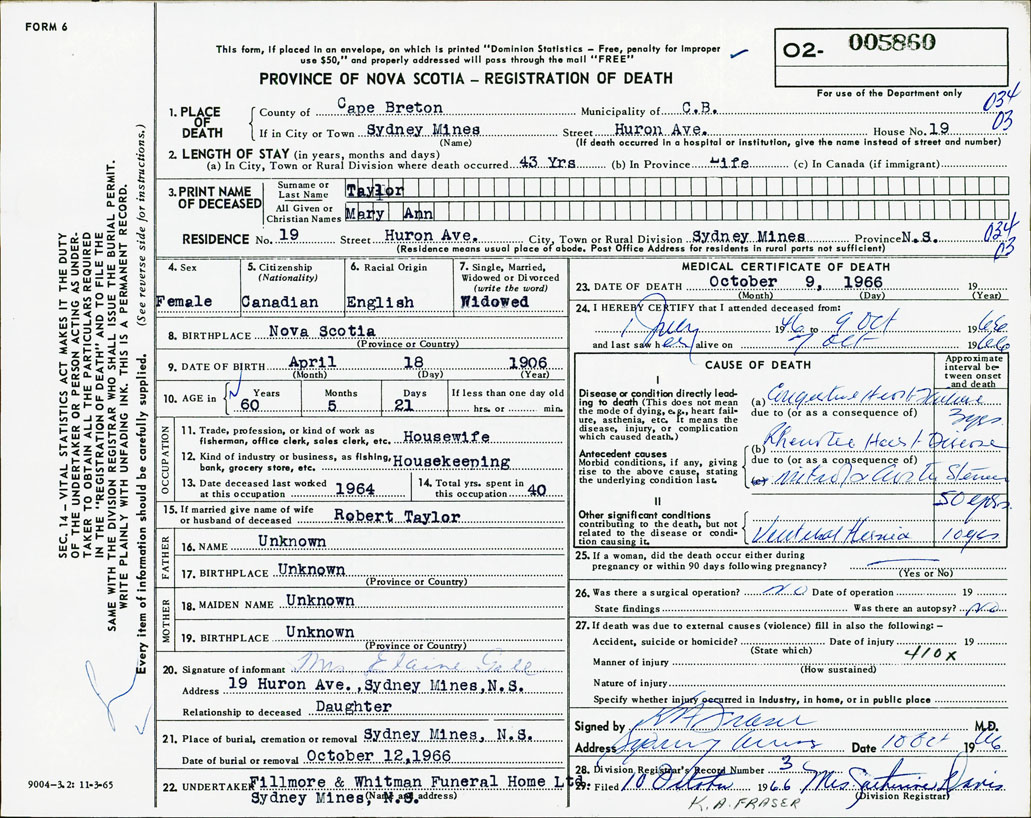 FORM 6
This form, if placed in an envelope, on which is printed "Dominion Statistics – Free, penalty for improper
use $50," and properly addressed will pass through the mail "FREE"
O2- 005860
For use of the Department only
PROVINCE OF NOVA SCOTIA – REGISTRATION OF DEATH
034
03
1. PLACE OF DEATH
County of Cape Breton Municipality of C.B.
If in City or Town Sydney Mines Street Huron Ave. House No. 19
(Name) (If death occurred in a hospital or institution, give the name instead of street and number)
2. LENGTH OF STAY (in years, months and days)
(a) In City, Town or Rural Division where death occurred 43 Yrs (b) In Province Life (c) In Canada (if immigrant)
3. PRINT NAME OF DECEASED
Surname or Last Name Taylor
All Given or Christian Names Mary Ann
RESIDENCE No. 19 Street Huron Ave. City, Town or Rural Division Sydney Mines Province N.S.
(Residence means usual place of abode. Post Office Address for residents in rural parts not sufficient)
034
03
4. Sex Female
5. Citizenship (Nationality) Canadian
6. Racial Origin English
7. Single, Married, Widowed or Divorced (write the word) Widowed
8. BIRTHPLACE Nova Scotia
(Province or Country)
9. DATE OF BIRTH April 18 1906
(Month) (Day) (Year)
10. AGE in Years Months Days If less than one day old
60 5 21 hrs. or min.
OCCUPATION
11. Trade, profession, or kind of work as
fisherman, office clerk, sales clerk, etc. Housewife
12. Kind of industry or business, as fishing,
bank, grocery store, etc. Housekeeping
13. Date deceased last worked
at this occupation 1964
14. Total yrs. spent in
this occupation 40
15. If married give name of wife
or husband of deceased Robert Taylor
FATHER
16. NAME Unknown
17. BIRTHPLACE Unknown
(Province or Country)
MOTHER
18. MAIDEN NAME Unknown
19. BIRTHPLACE Unknown
(Province or Country)
20. Signature of informant Mrs Elaine
Address 19 Huron Ave., Sydney Mines, N.S.
Relationship to deceased Daughter
21. Place of burial, cremation or removal Sydney Mines, N.S.
Date of burial or removal October 12, 1966
22. UNDERTAKER Fillmore & Whitman Funeral Home Ltd
Sydney Mines, N.S.
(Name and address)
MEDICAL CERTIFICATE OF DEATH
23. DATE OF DEATH October 9, 1966 19
(Month) (Day) (Year)
24. I HEREBY CERTIFY that I attended deceased from:
1 July 1946 to 9 Oct 1966
and last saw her alive on 7 Oct 1966
CAUSE OF DEATH
Approximate interval between onset and death
I
Disease or condition directly leading
to death (This does not mean
the mode of dying, e.g., heart failure,
asthenia, etc. It means the
disease, injury, or complication
which caused death.)
(a) Congestive Heart Failure
due to (or as a consequence of) 3 yrs
Antecedent causes
Morbid conditions, if any, giving
rise to the above cause, stating
the underlying condition last.
(b) Rheumatic Heart Disease
due to (or as a consequence of)
(c) Mitral & Aortic
50 yrs.
II
Other significant conditions
contributing to the death, but not
related to the disease or condition
causing it.
Ventral Hernia 10 yrs.
25. If a woman, did the death occur either during
pregnancy or within 90 days following pregnancy?
(Yes or No)
26. Was there a surgical operation? No Date of operation 19
State findings Was there an autopsy? No
27. If death was due to external causes (violence) fill in also the following: –
Accident, suicide or homicide? Date of injury 19
(State which) 410x
Manner of injury
(How sustained)
Nature of injury
Specify whether injury occurred in industry, in home, or in public place
Signed by K A Fraser M.D.
Address Sydney Mines Date 10 Oct 1966
28. Division Registrar's Record Number 3
29. Filed 10 October 1966 Mrs Davis
(Division Registrar)
K. A. FRASER
SEC. 14 – VITAL STATISTICS ACT MAKES IT THE DUTY
OF THE UNDERTAKER OR PERSON ACTING AS UNDER-
TAKER TO OBTAIN ALL THE PARTICULARS REQUIRED
IN THE "REGISTRATION OF DEATH" AND TO FILE THE
SAME WITH THE DIVISION REGISTRAR WHO SHALL ISSUE THE BURIAL PERMIT.
WRITE PLAINLY WITH UNFADING INK. THIS IS A PERMANENT RECORD.
Every item of information should be carefully supplied. (See reverse side for instructions.)
9004-3.2: 11-3-65